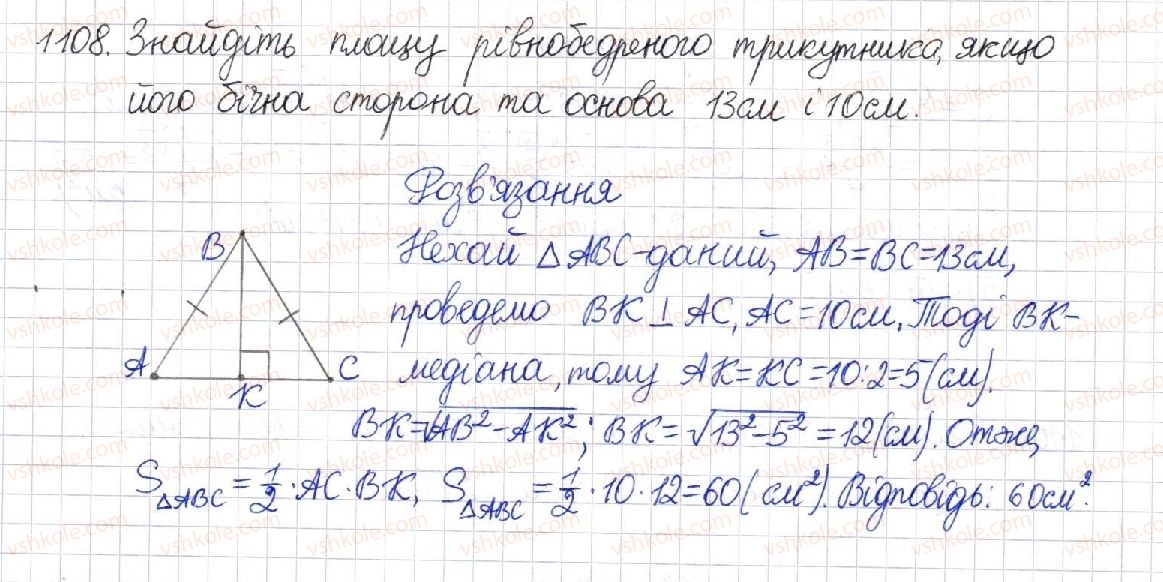 1108. Знайдіть площу рівнобедреного трикутника, якщо
його бічна сторона та основа 13см і 10см.
Розв'язання
Нехай △ABC-даний, AB=BC=13см,
проведемо BK⊥AC, AC=10см. Тоді BK-
медіана, тому AK=KC=10:2=5(см).
BK=√AB²-AK²; BK=√13²-5²=12(см). Отже,
S△ABC=1/2·AC·BK, S△ABC=1/2·10·12=60(см²). Відповідь: 60см².
B
A
K
C
vshkole.com